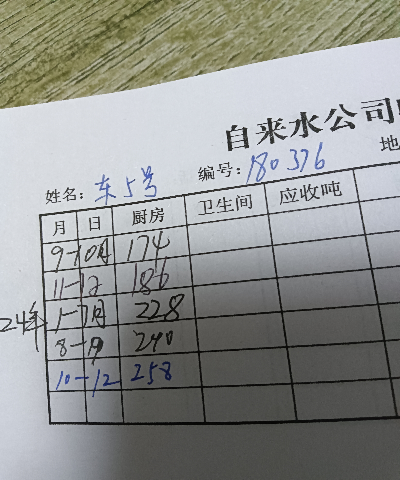 自来水公司
姓名: 东5号 编号: 180376 地
月 日 厨房 卫生间 应收吨
9-10月 174
11-12 186
24年 1-7月 228
8-9 240
10-12 258